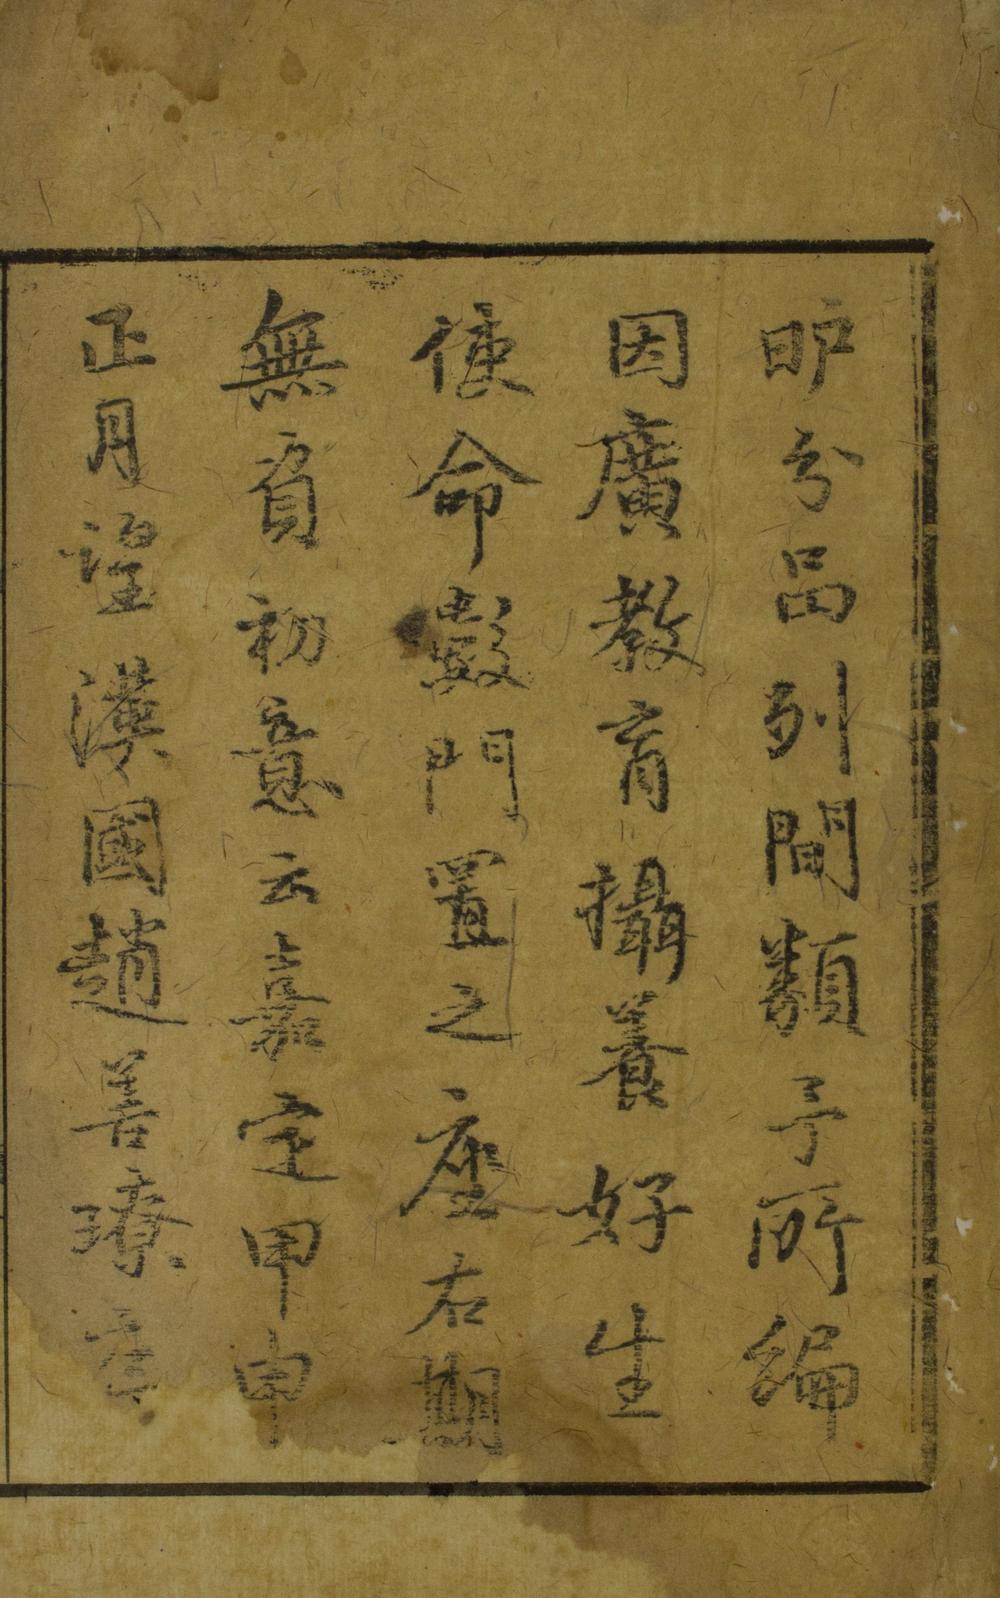 昈分品列間類予所編
因廣教育攝養好生
使命數門置之座右期
無負初意云嘉定甲申
正月望漢國趙善璙序